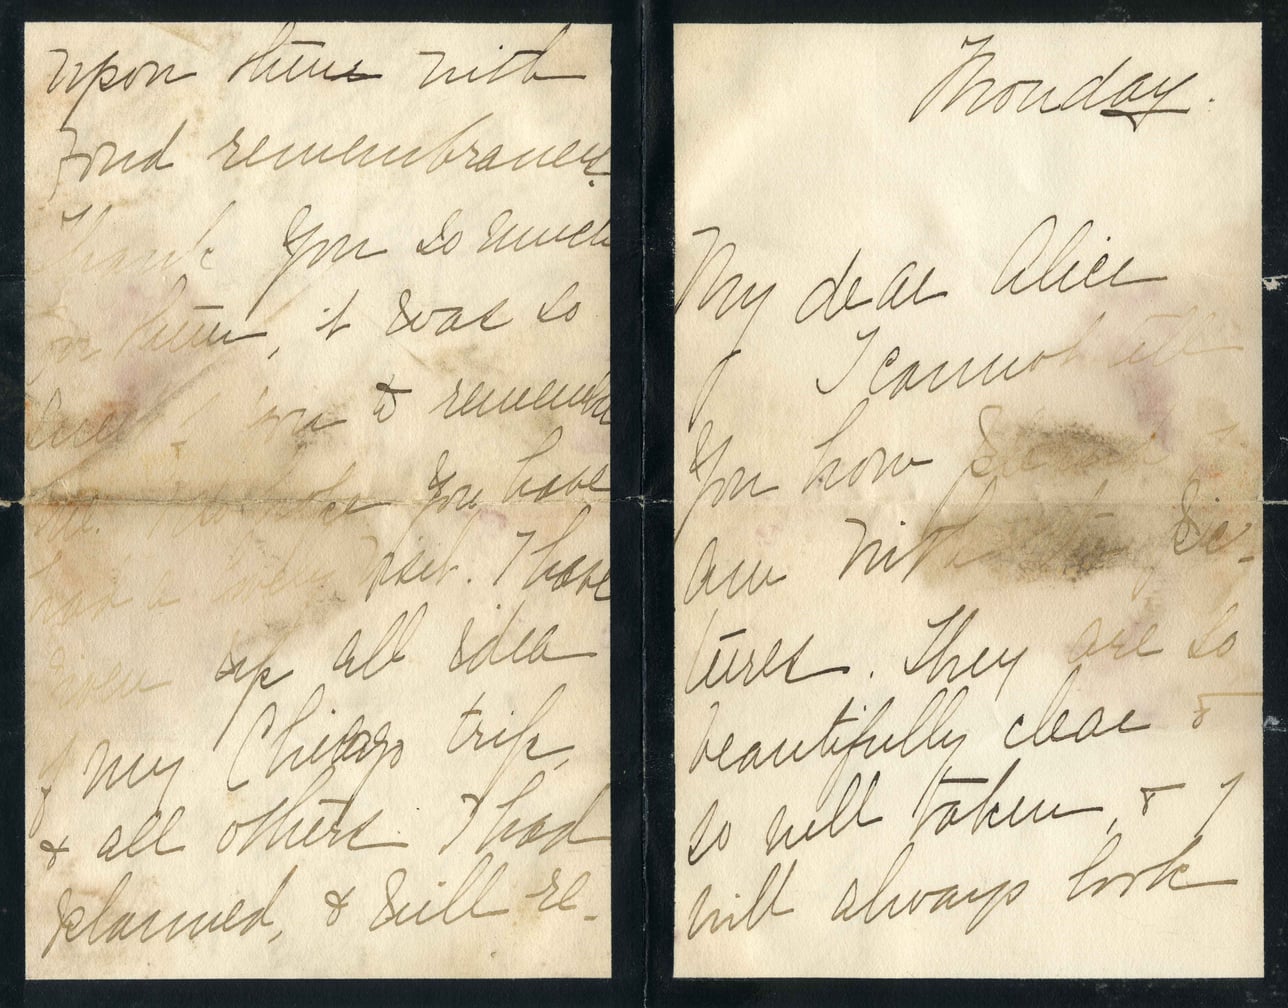 Monday.
My dear Alice
I cannot tell
you how
am with Pic-
tures. They are so
beautifully clear &
so well taken, & I
will always look
upon them with
fond remembrances.
Thank you so much
for them, it was so
to remember
me. you have
had a visit. I have
given up all idea
of my Chicago trip,
& all others I had
planned, & will re-